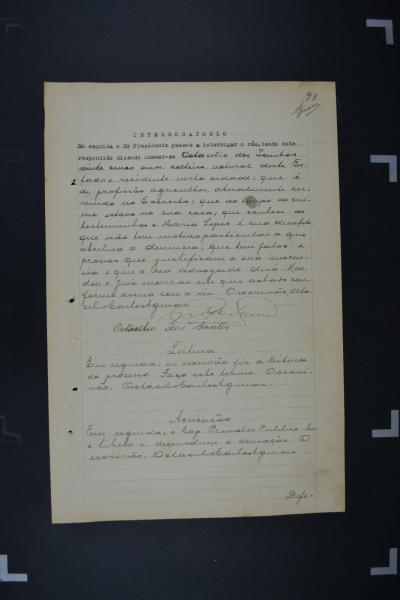 98
INTERROGATORIO
Em seguida o Dr Presidente passou a interrogar o réu, tendo este
respondido dizendo chamar-se Octacilio dos Santos
vinte annos, solteiro, natural deste Es-
tado e residente nesta cidade; que é
de profissão agricultor, atualmente ser-
vindo no Exército; que ao tempo do cri-
me estava na sua casa; que conhece as
testemunhas e Maria Lopes é sua
que não tem motivo particular a que
atribua a denuncia; que tem fatos e
provas que justificam a sua innocen-
cia e que o seu advogado dirá. Man-
dou o Juiz encerrar este que achado con-
forme assina com o réu. O escrivão, Octa-
cilio Carlos Aguiar
Octacilio dos Santos
Leitura
Em seguida, eu escrivão fiz a leitura
do processo. Faço este termo. O escri-
vão, Octacilio Carlos Aguiar
Acusação
Em seguida, o Cap. Promotor Publico leu
o libelo e a acusação. O
escrivão, Octacilio Carlos Aguiar
Defe-